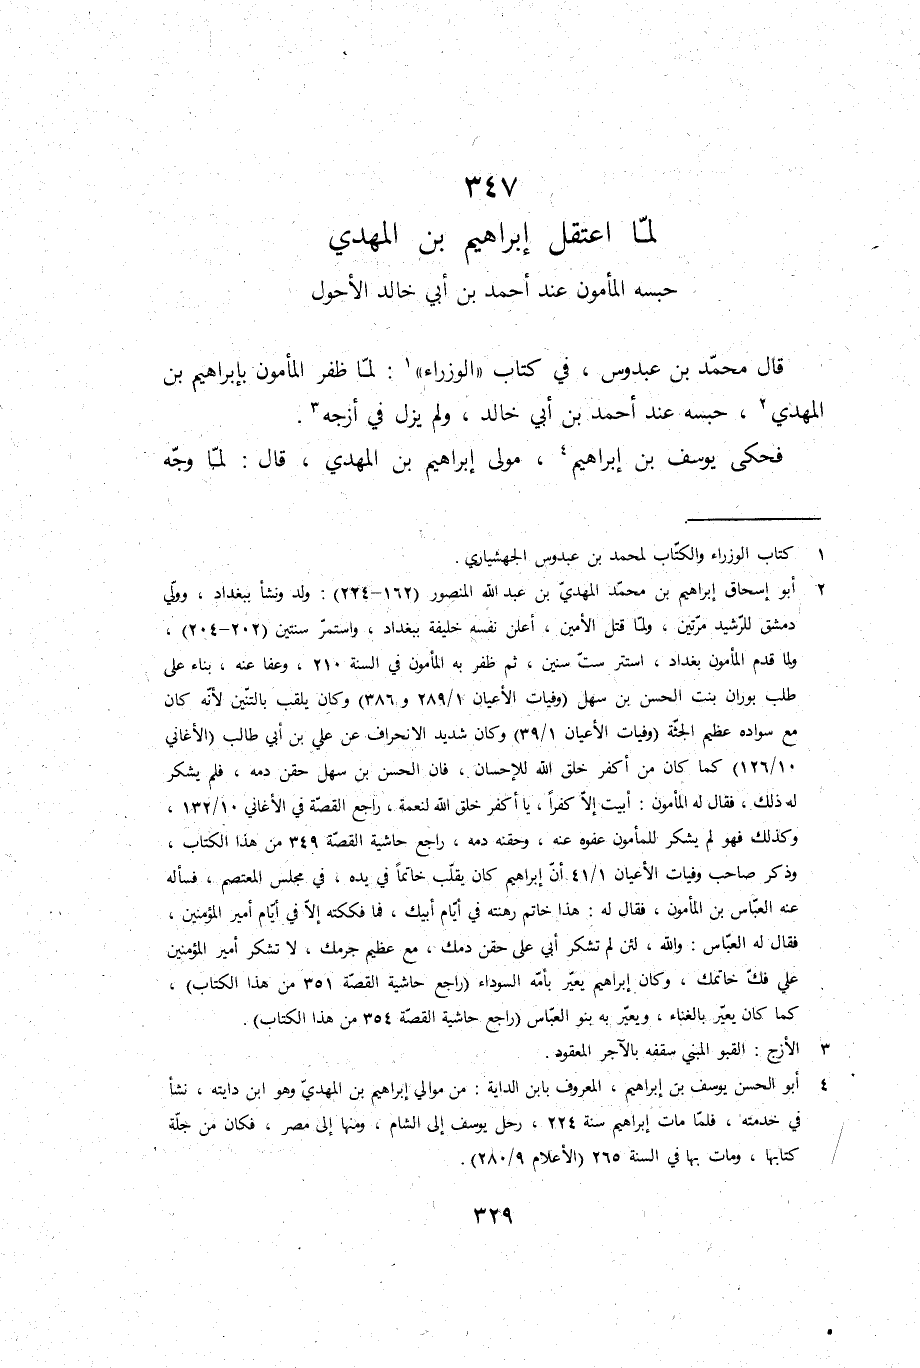 ٣٤٧
لمّا اعتقل إبراهيم بن المهدي
حبسه المأمون عند أحمد بن أبي خالد الأحول
قال محمّد بن عبدوس ، في كتاب «الوزراء»١ : لمّا ظفر المأمون بإبراهيم بن
المهدي٢ ، حبسه عند أحمد بن أبي خالد ، ولم يزل في أزجه٣ .
فحكى يوسف بن إبراهيم٤ ، مولى إبراهيم بن المهدي ، قال : لمّا وجّه
١ كتاب الوزراء والكتّاب لمحمد بن عبدوس الجهشياري .
٢ أبو إسحاق إبراهيم بن محمّد المهديّ بن عبد الله المنصور (١٦٢–٢٢٤) : ولد ونشأ ببغداد ، وولّي
دمشق للرّشيد مرّتين ، ولمّا قتل الأمين ، أعلن نفسه خليفة ببغداد ، واستمرّ سنتين (٢٠٢–٢٠٤) ،
ولما قدم المأمون بغداد ، استتر ستّ سنين ، ثم ظفر به المأمون في السنة ٢١٠ ، وعفا عنه ، بناء على
طلب بوران بنت الحسن بن سهل (وفيات الأعيان ٢٨٩/١ و ٣٨٦) وكان يلقب بالتنّين لأنّه كان
مع سواده عظيم الجثّة (وفيات الأعيان ٣٩/١) وكان شديد الانحراف عن علي بن أبي طالب (الأغاني
١٢٦/١٠) كما كان من أكفر خلق الله للإحسان ، فان الحسن بن سهل حقن دمه ، فلم يشكر
له ذلك ، فقال له المأمون : أبيت إلاّ كفراً ، يا أكفر خلق الله لنعمة ، راجع القصّة في الأغاني ١٣٢/١٠ ،
وكذلك فهو لم يشكر للمأمون عفوه عنه ، وحقنه دمه ، راجع حاشية القصّة ٣٤٩ من هذا الكتاب ،
وذكر صاحب وفيات الأعيان ٤١/١ أنّ إبراهيم كان يقلّب خاتماً في يده ، في مجلس المعتصم ، فسأله
عنه العبّاس بن المأمون ، فقال له : هذا خاتم رهنته في أيّام أبيك ، فما فككته إلاّ في أيّام أمير المؤمنين ،
فقال له العبّاس : والله ، لئن لم تشكر أبي على حقن دمك ، مع عظيم جرمك ، لا تشكر أمير المؤمنين
على فكّ خاتمك ، وكان إبراهيم يعيّر بأمّه السوداء (راجع حاشية القصّة ٣٥١ من هذا الكتاب) ،
كما كان يعيّر بالغناء ، ويعيّر به بنو العبّاس (راجع حاشية القصّة ٣٥٤ من هذا الكتاب) .
٣ الأزج : القبو المبني سقفه بالآجر المعقود .
٤ أبو الحسن يوسف بن إبراهيم ، المعروف بابن الداية : من موالي إبراهيم بن المهديّ وهو ابن دايته ، نشأ
في خدمته ، فلمّا مات إبراهيم سنة ٢٢٤ ، رحل يوسف إلى الشام ، ومنها إلى مصر ، فكان من جلّة
كتابها ، ومات بها في السنة ٢٦٥ (الأعلام ٢٨٠/٩) .
٣٢٩